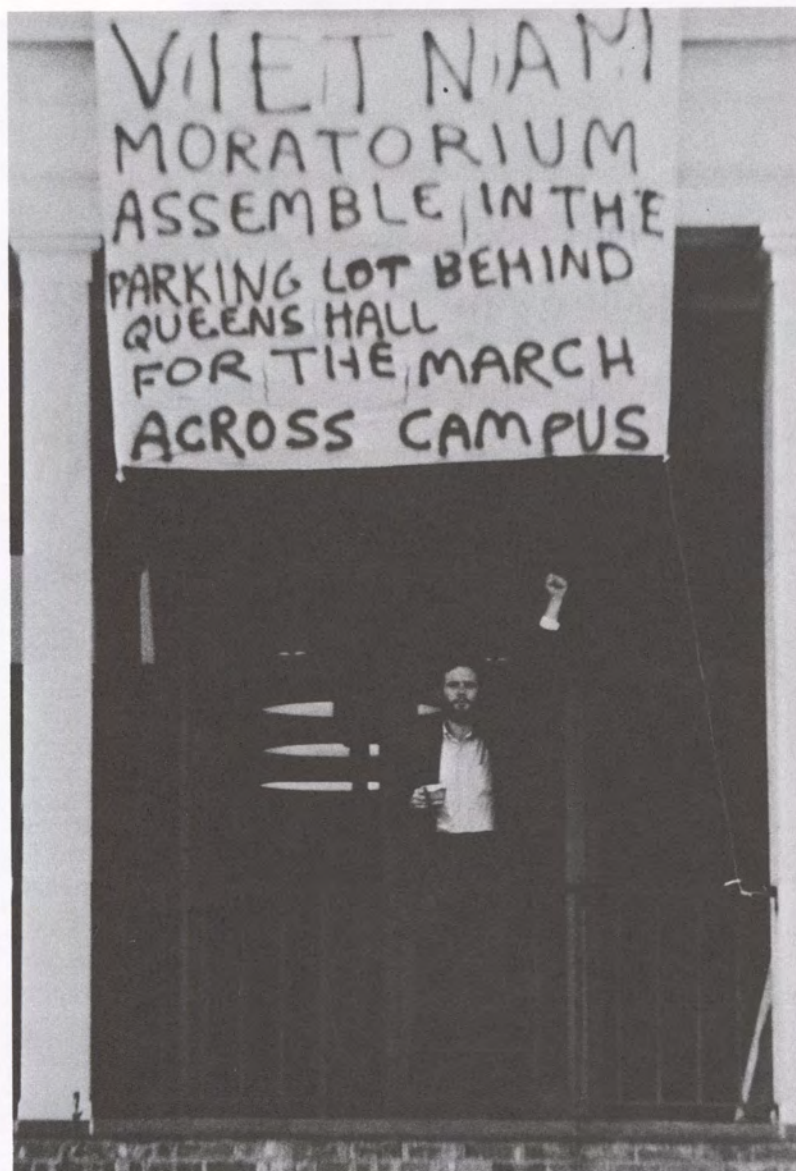 VIETNAM
MORATORIUM
ASSEMBLE IN THE
PARKING LOT BEHIND
QUEENS HALL
FOR THE MARCH
ACROSS CAMPUS